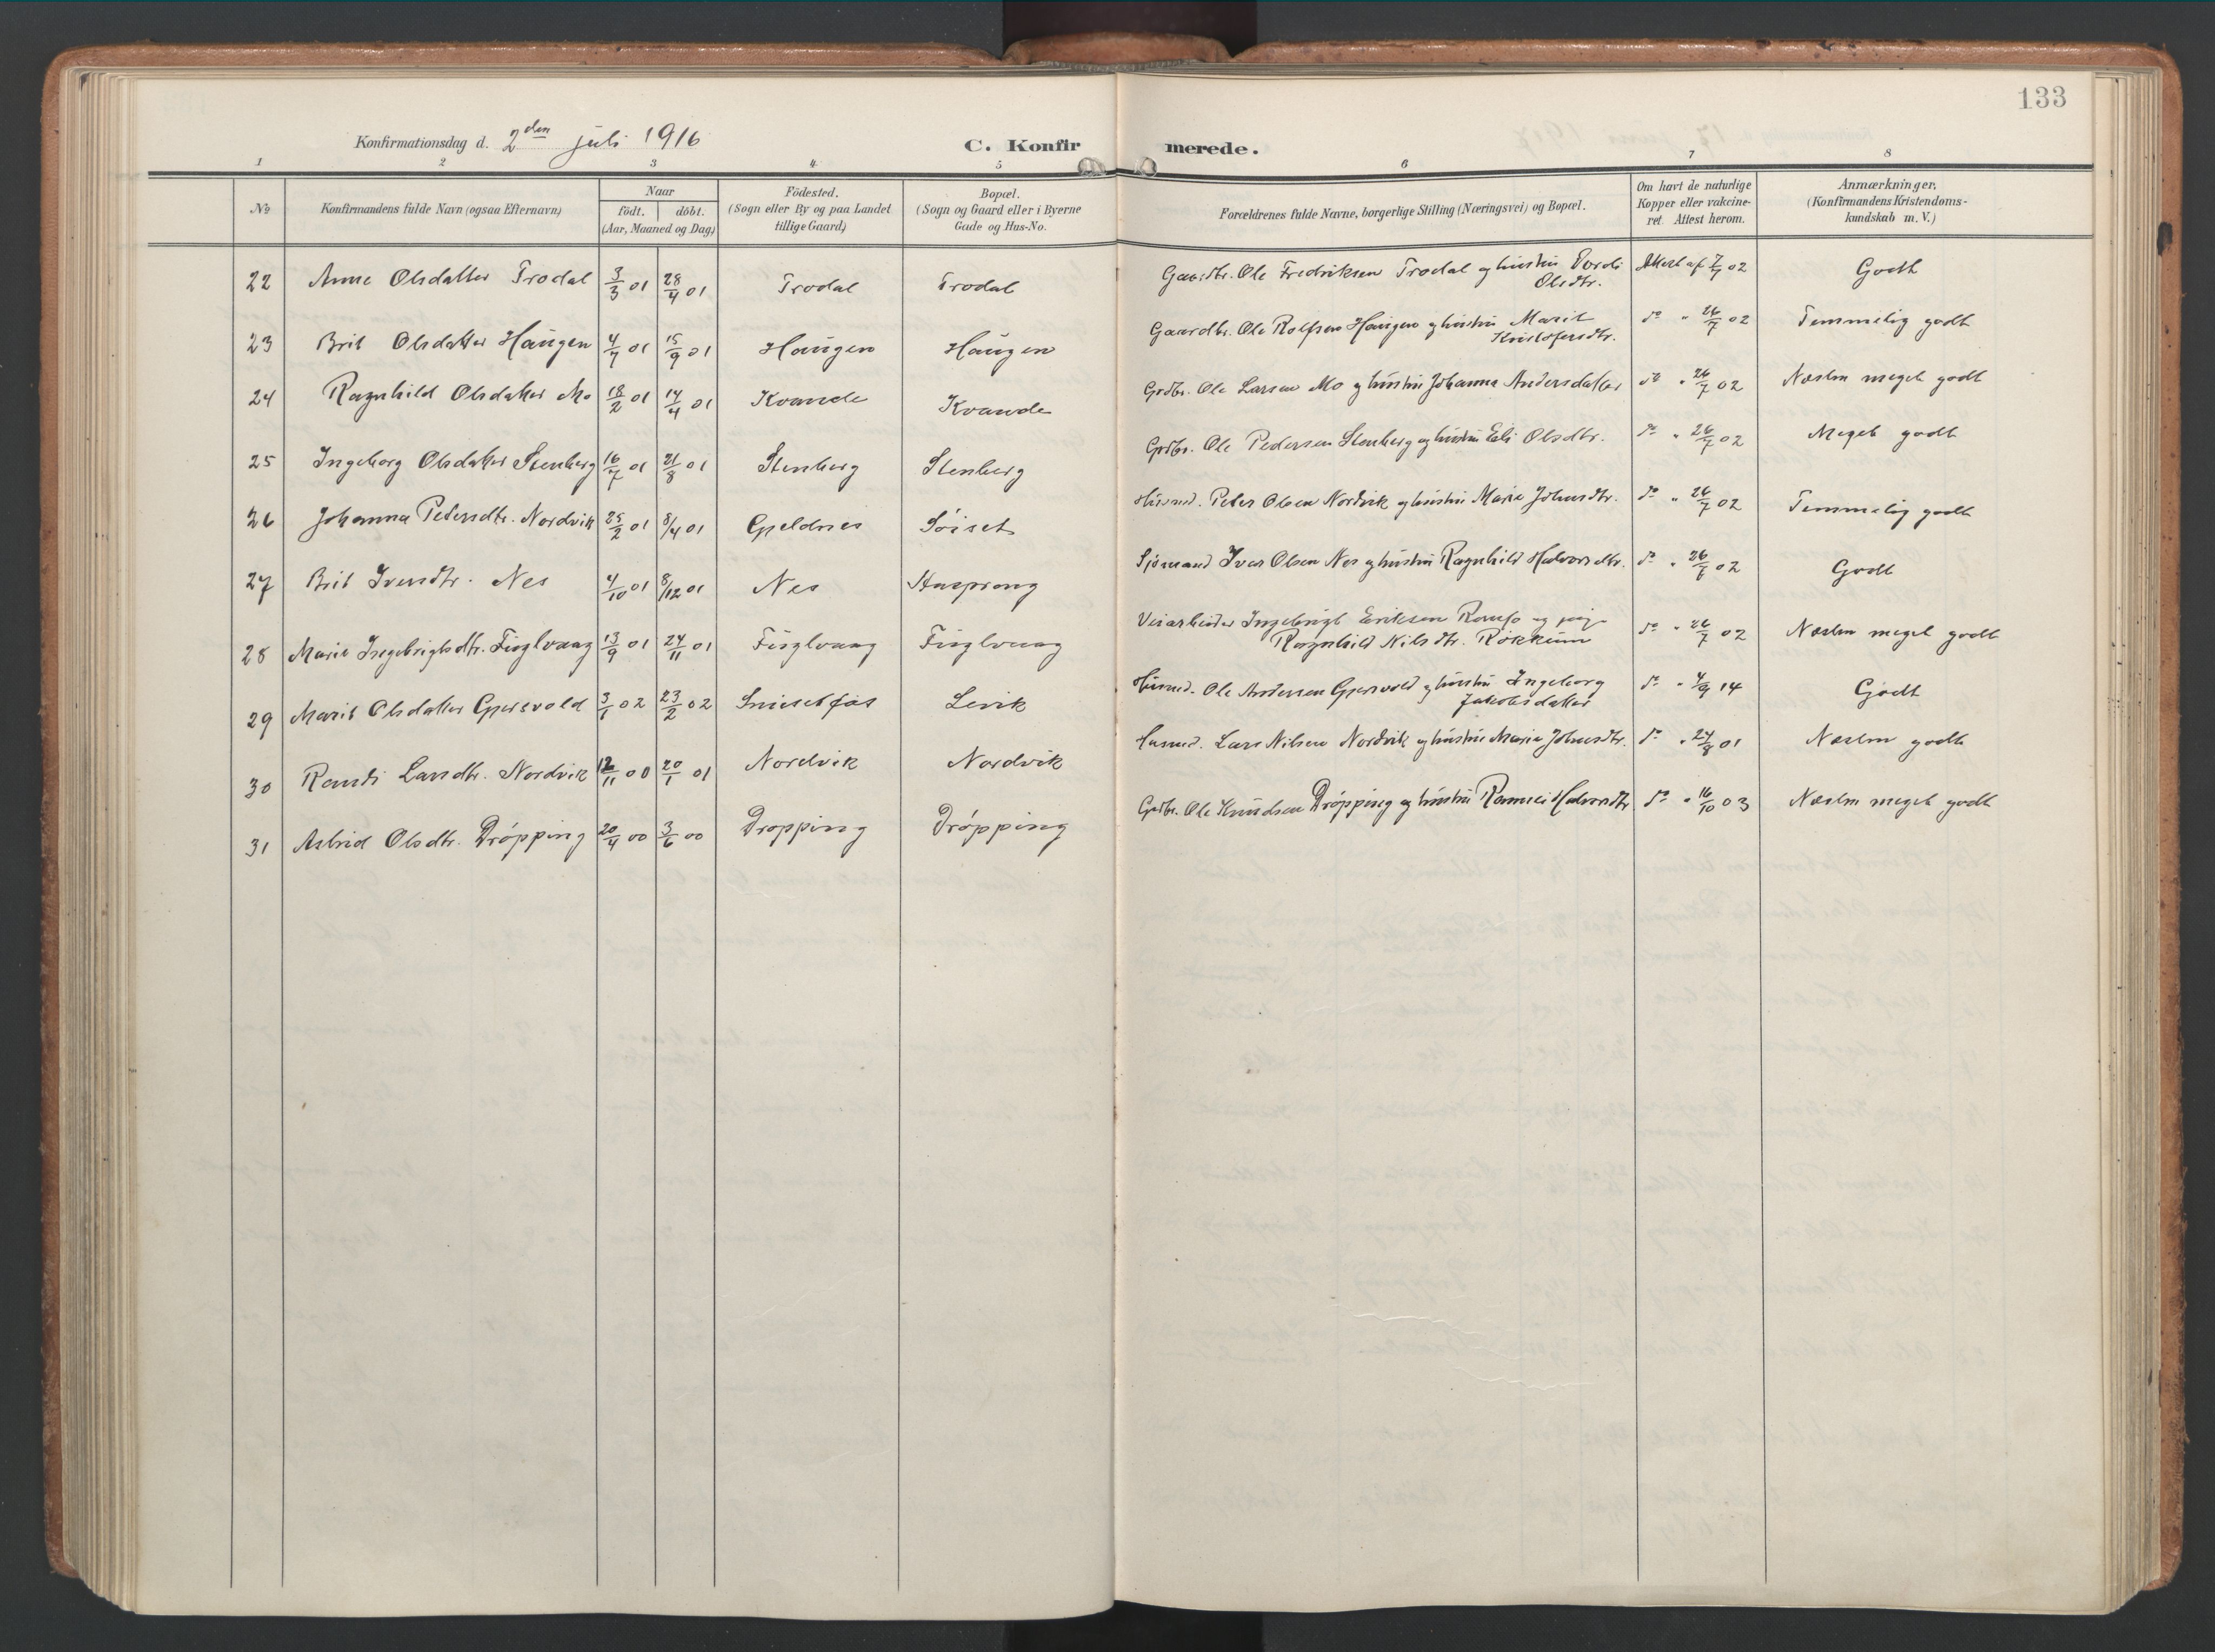 133
Konfirmationsdag d. 2den juli 1916
C. Konfirmerede.
1 2 3 4 5 6 7 8
№ Konfirmandens fulde Navn (ogsaa Efternavn) Naar födt. döbt. (Aar, Maaned og Dag) Födested. (Sogn eller By og paa Landet tillige Gaard) Bopæl. (Sogn og Gaard eller i Byerne Gade og Hus-No. Forældrenes fulde Navne, borgerlige Stilling (Næringsvei) og Bopæl. Om havt de naturlige Kopper eller vakcineret. Attest herom. Anmærkninger. (Konfirmandens Kristendomskundskab m. V.)
22 Anne Olsdatter Trodal 3/3 01 28/4 01 Trodal Trodal Gaardbr. Ole Fredriksen Trodal og hustru Gordi Olsdtr. Attest af 7/7 02 Godt
23 Brit Olsdatter Haugen 4/7 01 15/9 01 Haugen Haugen Gaardbr. Ole Rolfsen Haugen og hustru Marit Kristofersdtr. do " 26/7 02 Temmelig godt
24 Ragnhild Olsdatter Mo 18/2 01 14/4 01 Kvande Kvande Grdbr. Ole Larsen Mo og hustru Johanna Andersdatter do " 26/7 02 Næsten meget godt
25 Ingeborg Olsdatter Stenberg 16/7 01 21/8 01 Stenberg Stenberg Grdbr. Ole Pedersen Stenberg og hustru Eli Olsdtr. do " 26/7 02 Meget godt
26 Johanna Pedersdtr. Nordvik 25/2 01 8/4 01 Gjeldnes Søiset Husmd. Peter Olsen Nordvik og hustru Marie Johnsdtr. do " 26/7 02 Temmelig godt
27 Brit Iversdtr. Nes 4/10 01 8/12 01 Nes Stensprong Sjømand Iver Olsen Nes og hustru Ragnhild Halvorsdtr. do " 26/7 02 Godt
28 Marie Ingebrigtsdtr. Fuglvaag 13/9 01 24/11 01 Fuglvaag Fuglvaag Veiarbeider Ingebrigt Eriksen og pige Ragnhild Nilsdtr. Røkkum do " 26/7 02 Næsten meget godt
29 Marit Olsdatter Gjersvold 3/1 02 23/2 02 Settemsfjøs Levik Husmd. Ole Andersen Gjersvold og hustru Ingeborg Jakobsdatter do " 4/9 14 Godt
30 Randi Larsdtr. Nordvik 12/11 00 20/1 01 Nordvik Nordvik Husmd. Lars Nilsen Nordvik og hustru Marie Johnsdtr. do " 24/8 01 Næsten godt
31 Astrid Olsdtr. Drøpping 20/4 00 3/6 00 Drøpping Drøpping Grdbr. Ole Knudsen Drøpping og hustru Rannei Halvorsdtr do " 16/10 03 Næsten meget godt